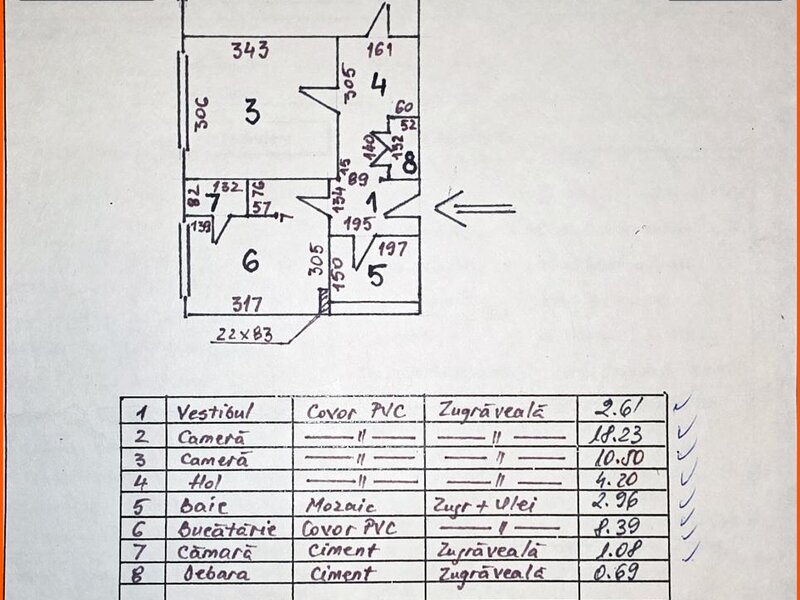 343 161
305 4
306 3
60
52
140 132 8
15
89
132 76 134 1
82 7 57
139 195
6 305 150 197
5
317
22x83
1 Vestibul Covor PVC Zugrăveală 2.61
2 Cameră —〃— —〃— 18.23
3 Cameră —〃— —〃— 10.50
4 Hol —〃— —〃— 4.20
5 Baie Mozaic Zugr + Ulei 2.96
6 Bucătărie Covor PVC —〃— 8.39
7 Cămară Ciment Zugrăveală 1.08
8 Debara Ciment Zugrăveală 0.69